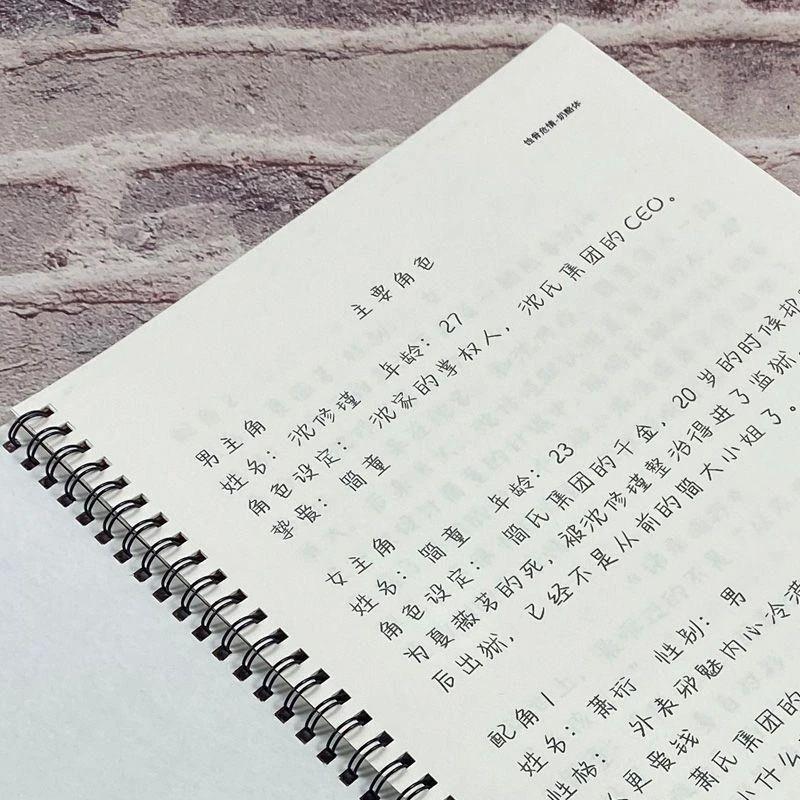 蚀骨危情-奶酪体
主要角色
男主角
姓名：沈修瑾 年龄：27
角色设定：沈家的掌权人，沈氏集团的CEO。
挚爱：简童
女主角
姓名：简童 年龄：23
角色设定：简氏集团的千金，20岁的时候却
为夏薇茗的死，被沈修瑾整治得进了监狱，
后出狱，已经不是从前的简大小姐了。
配角1
姓名：萧珩 性别：男
性格：外表邪魅内心冷漠
更爱钱
萧氏集团的
什么